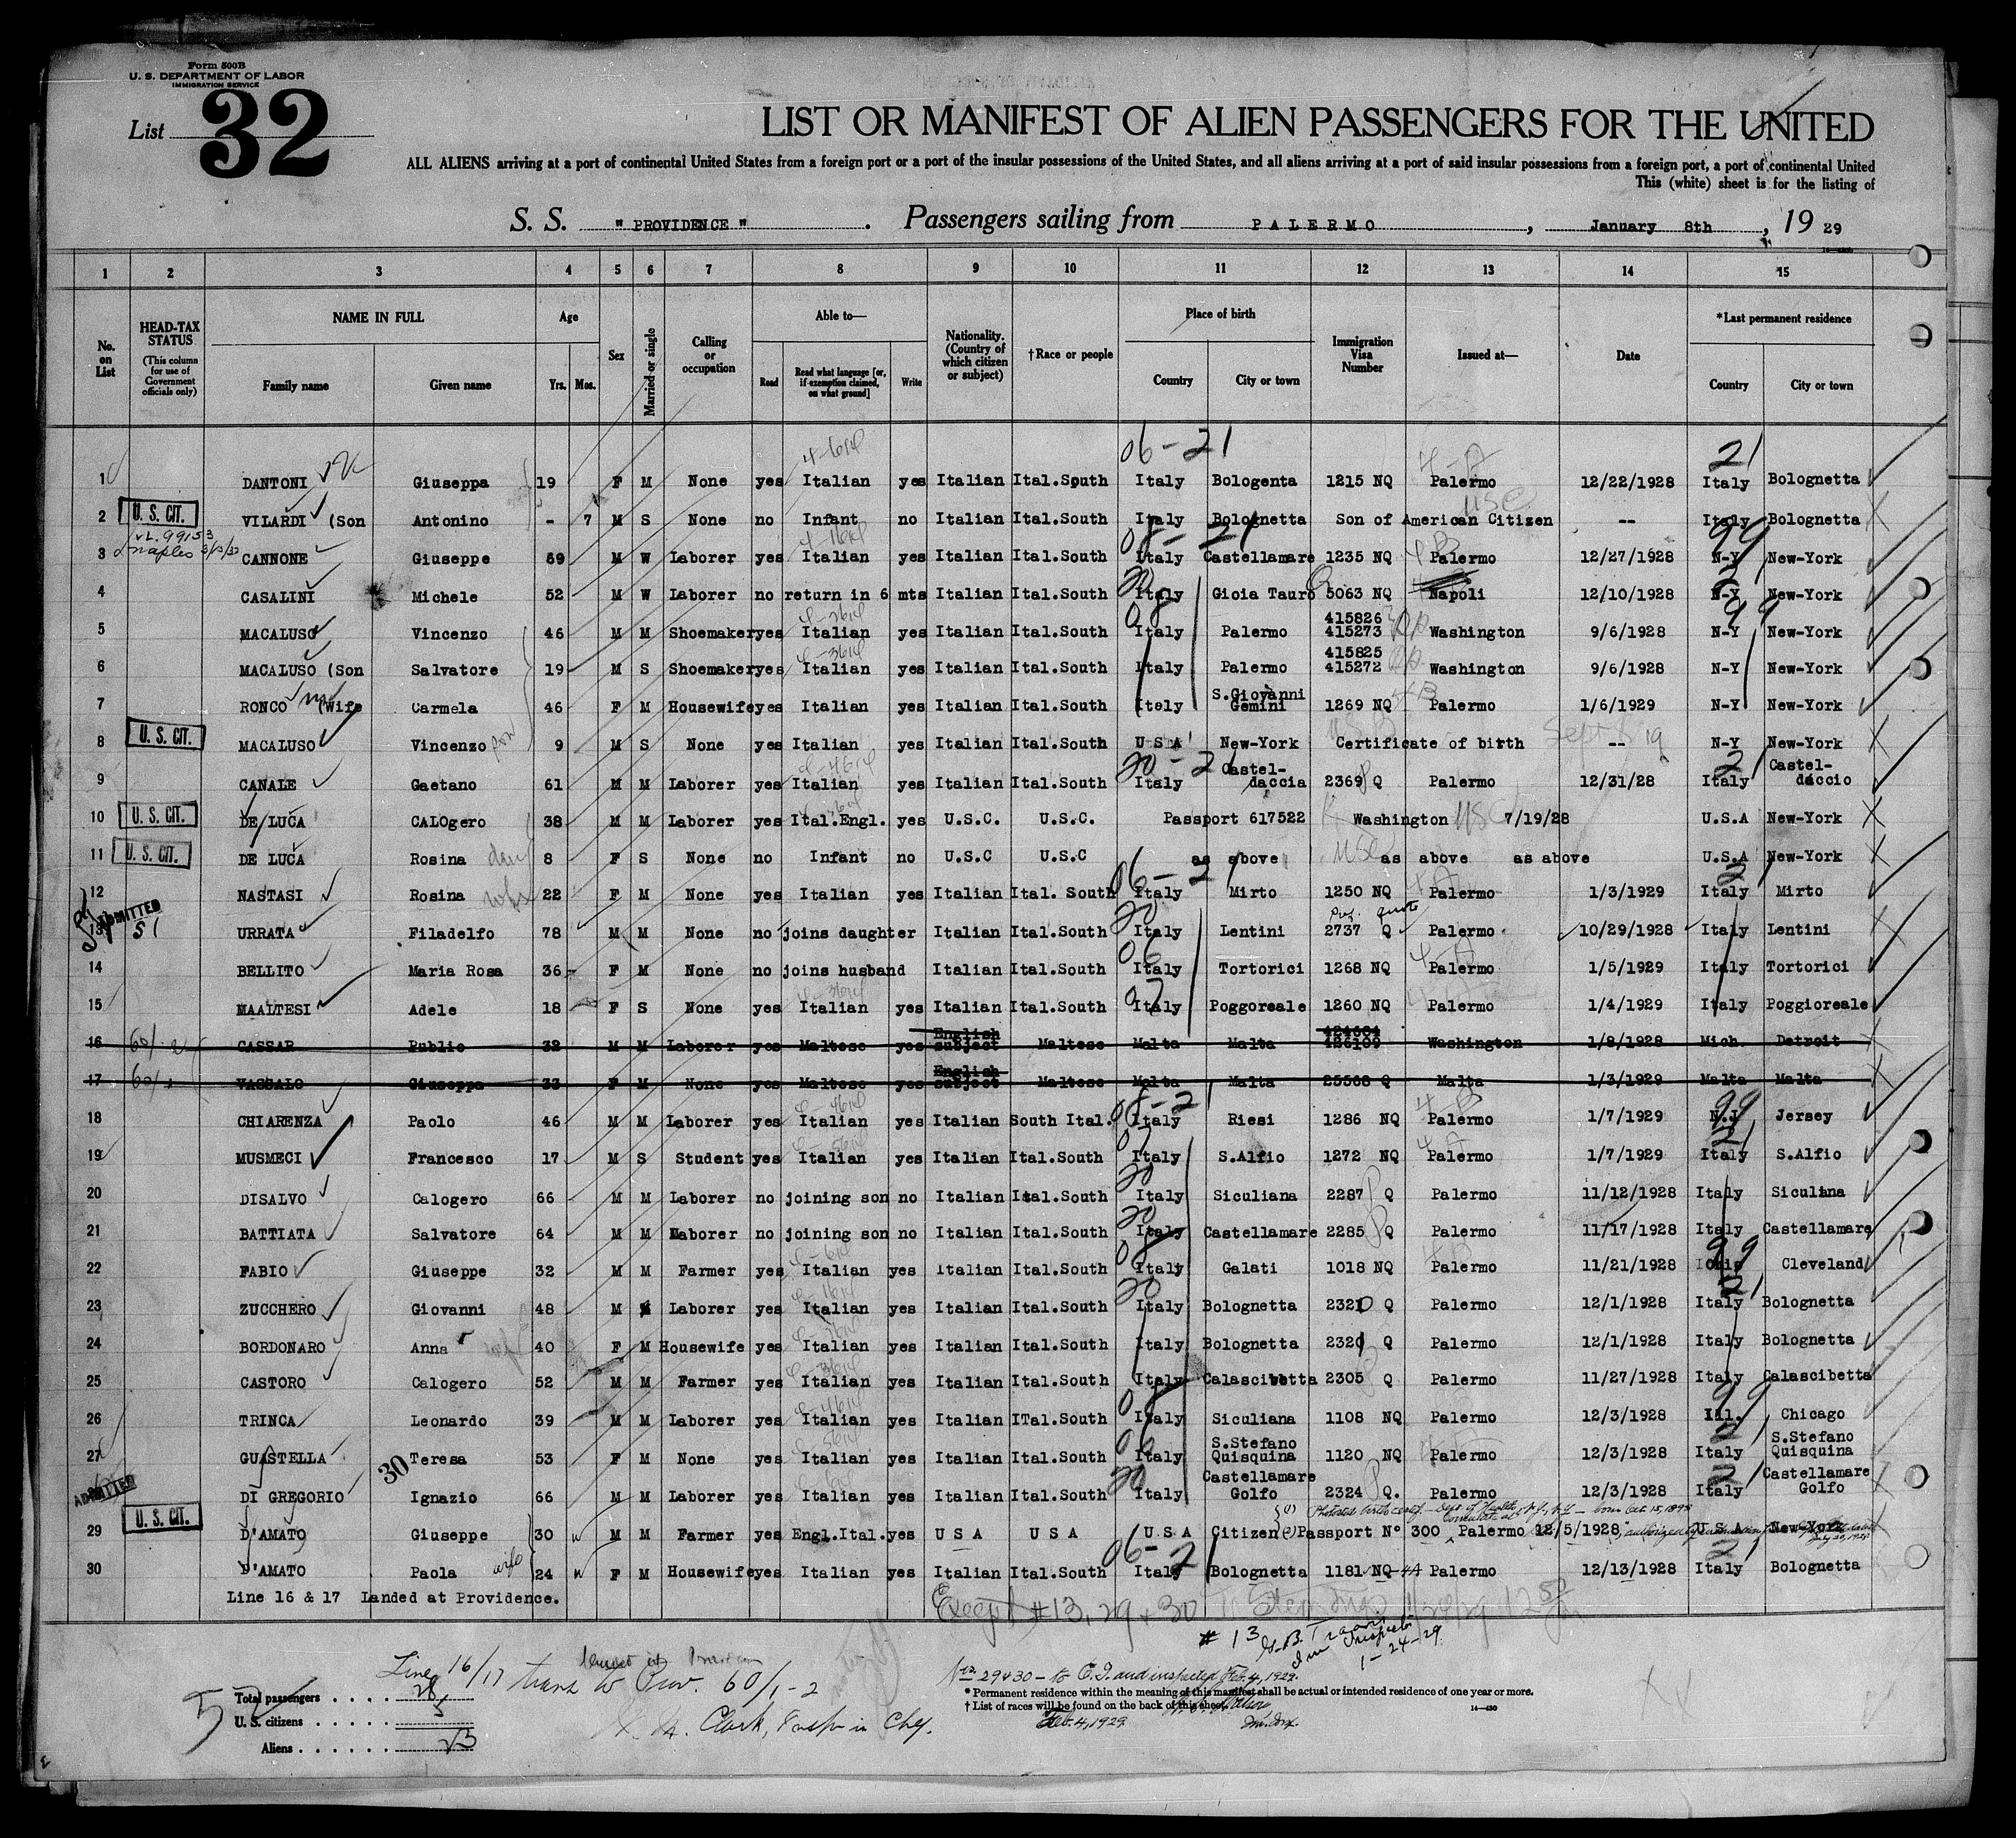 Form 500B
U. S. DEPARTMENT OF LABOR
IMMIGRATION SERVICE
List 32
LIST OR MANIFEST OF ALIEN PASSENGERS FOR THE UNITED
ALL ALIENS arriving at a port of continental United States from a foreign port or a port of the insular possessions of the United States, and all aliens arriving at a port of said insular possessions from a foreign port, a port of continental United
This (white) sheet is for the listing of
S. S. "PROVIDENCE". Passengers sailing from PALERMO, January 8th, 19 29
1 2 3 4 5 6 7 8 9 10 11 12 13 14 15
No. on List
HEAD-TAX STATUS (This column for use of Government officials only)
NAME IN FULL Family name Given name
Age Yrs. Mos.
Sex
Married or single
Calling or occupation
Able to— Read Read what language [or, if exemption claimed, on what ground] Write
Nationality. (Country of which citizen or subject)
†Race or people
Place of birth Country City or town
Immigration Visa Number
Issued at—
Date
*Last permanent residence Country City or town
06-21 21
1 DANTONI Giuseppa 19 F M None yes Italian yes Italian Ital.South Italy Bologenta 1215 NQ Palermo 12/22/1928 Italy Bolognetta
2 U. S. CIT. VILARDI (Son Antonino - 7 M S None no Infant no Italian Ital.South Italy Bolognetta Son of American Citizen -- Italy Bolognetta
3 CANNONE Giuseppe 59 M W Laborer yes Italian yes Italian Ital.South Italy Castellamare 1235 NQ Palermo 12/27/1928 N-Y New-York
4 CASALINI Michele 52 M W Laborer no return in 6 mts Italian Ital.South Italy Gioia Tauro 5063 NQ Napoli 12/10/1928 N-Y New-York
5 MACALUSO Vincenzo 46 M M Shoemaker yes Italian yes Italian Ital.South Italy Palermo 415826 415273 Washington 9/6/1928 N-Y New-York
6 MACALUSO (Son Salvatore 19 M S Shoemaker yes Italian yes Italian Ital.South Italy Palermo 415825 415272 Washington 9/6/1928 N-Y New-York
7 RONCO (Wife Carmela 46 F M Housewife yes Italian yes Italian Ital.South Italy S.Giovanni Gemini 1269 NQ Palermo 1/6/1929 N-Y New-York
8 U. S. CIT. MACALUSO Vincenzo son 9 M S None yes Italian yes Italian Ital.South U S A New-York Certificate of birth -- N-Y New-York
9 CANALE Gaetano 61 M M Laborer yes Italian yes Italian Ital.South Italy Castel-daccia 2369 Q Palermo 12/31/28 Italy Castel-daccio
10 U. S. CIT. DE LUCA CALOgero 38 M M Laborer yes Ital.Engl. yes U.S.C. U.S.C. Passport 617522 Washington 7/19/28 U.S.A New-York
11 U. S. CIT. DE LUCA Rosina dau 8 F S None no Infant no U.S.C U.S.C as above as above as above U.S.A New-York
12 NASTASI Rosina 22 F M None yes Italian yes Italian Ital. South Italy Mirto 1250 NQ Palermo 1/3/1929 Italy Mirto
ADMITTED
13 URRATA Filadelfo 78 M M None no joins daughter Italian Ital.South Italy Lentini 2737 Q Palermo 10/29/1928 Italy Lentini
14 BELLITO Maria Rosa 36 F M None no joins husband Italian Ital.South Italy Tortorici 1268 NQ Palermo 1/5/1929 Italy Tortorici
15 MAALTESI Adele 18 F S None yes Italian yes Italian Ital.South Italy Poggoreale 1260 NQ Palermo 1/4/1929 Italy Poggioreale
16 CASSAR Public 32 M M Laborer yes Maltese yes English subject Maltese Malta Malta 424604 426109 Washington 1/8/1928 Mich. Detroit
17 VASSALO Giuseppa 33 F M None yes Maltese yes English subject Maltese Malta Malta 25568 Q Malta 1/3/1929 Malta Malta
18 CHIARENZA Paolo 46 M M Laborer yes Italian yes Italian South Ital. Italy Riesi 1286 NQ Palermo 1/7/1929 N.J Jersey
19 MUSMECI Francesco 17 M S Student yes Italian yes Italian Ital.South Italy S.Alfio 1272 NQ Palermo 1/7/1929 Italy S.Alfio
20 DISALVO Calogero 66 M M Laborer no joining son no Italian Ital.South Italy Siculiana 2287 Q Palermo 11/12/1928 Italy Siculina
21 BATTIATA Salvatore 64 M M Laborer no joining son no Italian Ital.South Italy Castellamare 2285 Q Palermo 11/17/1928 Italy Castellamare
22 FABIO Giuseppe 32 M M Farmer yes Italian yes Italian Ital.South Italy Galati 1018 NQ Palermo 11/21/1928 Ohio Cleveland
23 ZUCCHERO Giovanni 48 M Laborer yes Italian yes Italian Ital.South Italy Bolognetta 2321 Q Palermo 12/1/1928 Italy Bolognetta
24 BORDONARO Anna 40 F M Housewife yes Italian yes Italian Ital.South Italy Bolognetta 2320 Q Palermo 12/1/1928 Italy Bolognetta
25 CASTORO Calogero 52 M M Farmer yes Italian yes Italian Ital.South Italy Calascibetta 2305 Q Palermo 11/27/1928 Italy Calascibetta
26 TRINCA Leonardo 39 M M Laborer yes Italian yes Italian ITal.South Italy Siculiana 1108 NQ Palermo 12/3/1928 Ill. Chicago
27 GUASTELLA Teresa 53 F M None yes Italian yes Italian Ital.South Italy S.Stefano Quisquina 1120 NQ Palermo 12/3/1928 Italy S.Stefano Quisquina
30
ADMITTED DI GREGORIO Ignazio 66 M M Laborer yes Italian yes Italian Ital.South Italy Castellamare Golfo 2324 Q. Palermo 12/3/1928 Italy Castellamare Golfo
29 U. S. CIT. D'AMATO Giuseppe 30 M M Farmer yes Engl.Ital. yes U S A U S A U S A Citizen Passport N° 300 Palermo 12/5/1928 U S A New-York
30 D'AMATO Paola wife 24 F M Housewife yes Italian yes Italian Ital.South Italy Bolognetta 1181 NQ Palermo 12/13/1928 Italy Bolognetta
Line 16 & 17 Landed at Providence.
Except #13, 29 + 30
# 13 Inspector 1-24-29
Line 16/17 trans to Prov. 60/1-2
Nos. 29 & 30 - to E.I. and inspected Feb. 4, 1929.
Total passengers . . . . 28
U. S. citizens . . . . . 5
Aliens . . . . . . 23
* Permanent residence within the meaning of this manifest shall be actual or intended residence of one year or more.
† List of races will be found on the back of this sheet.
Feb. 4, 1929
14—430